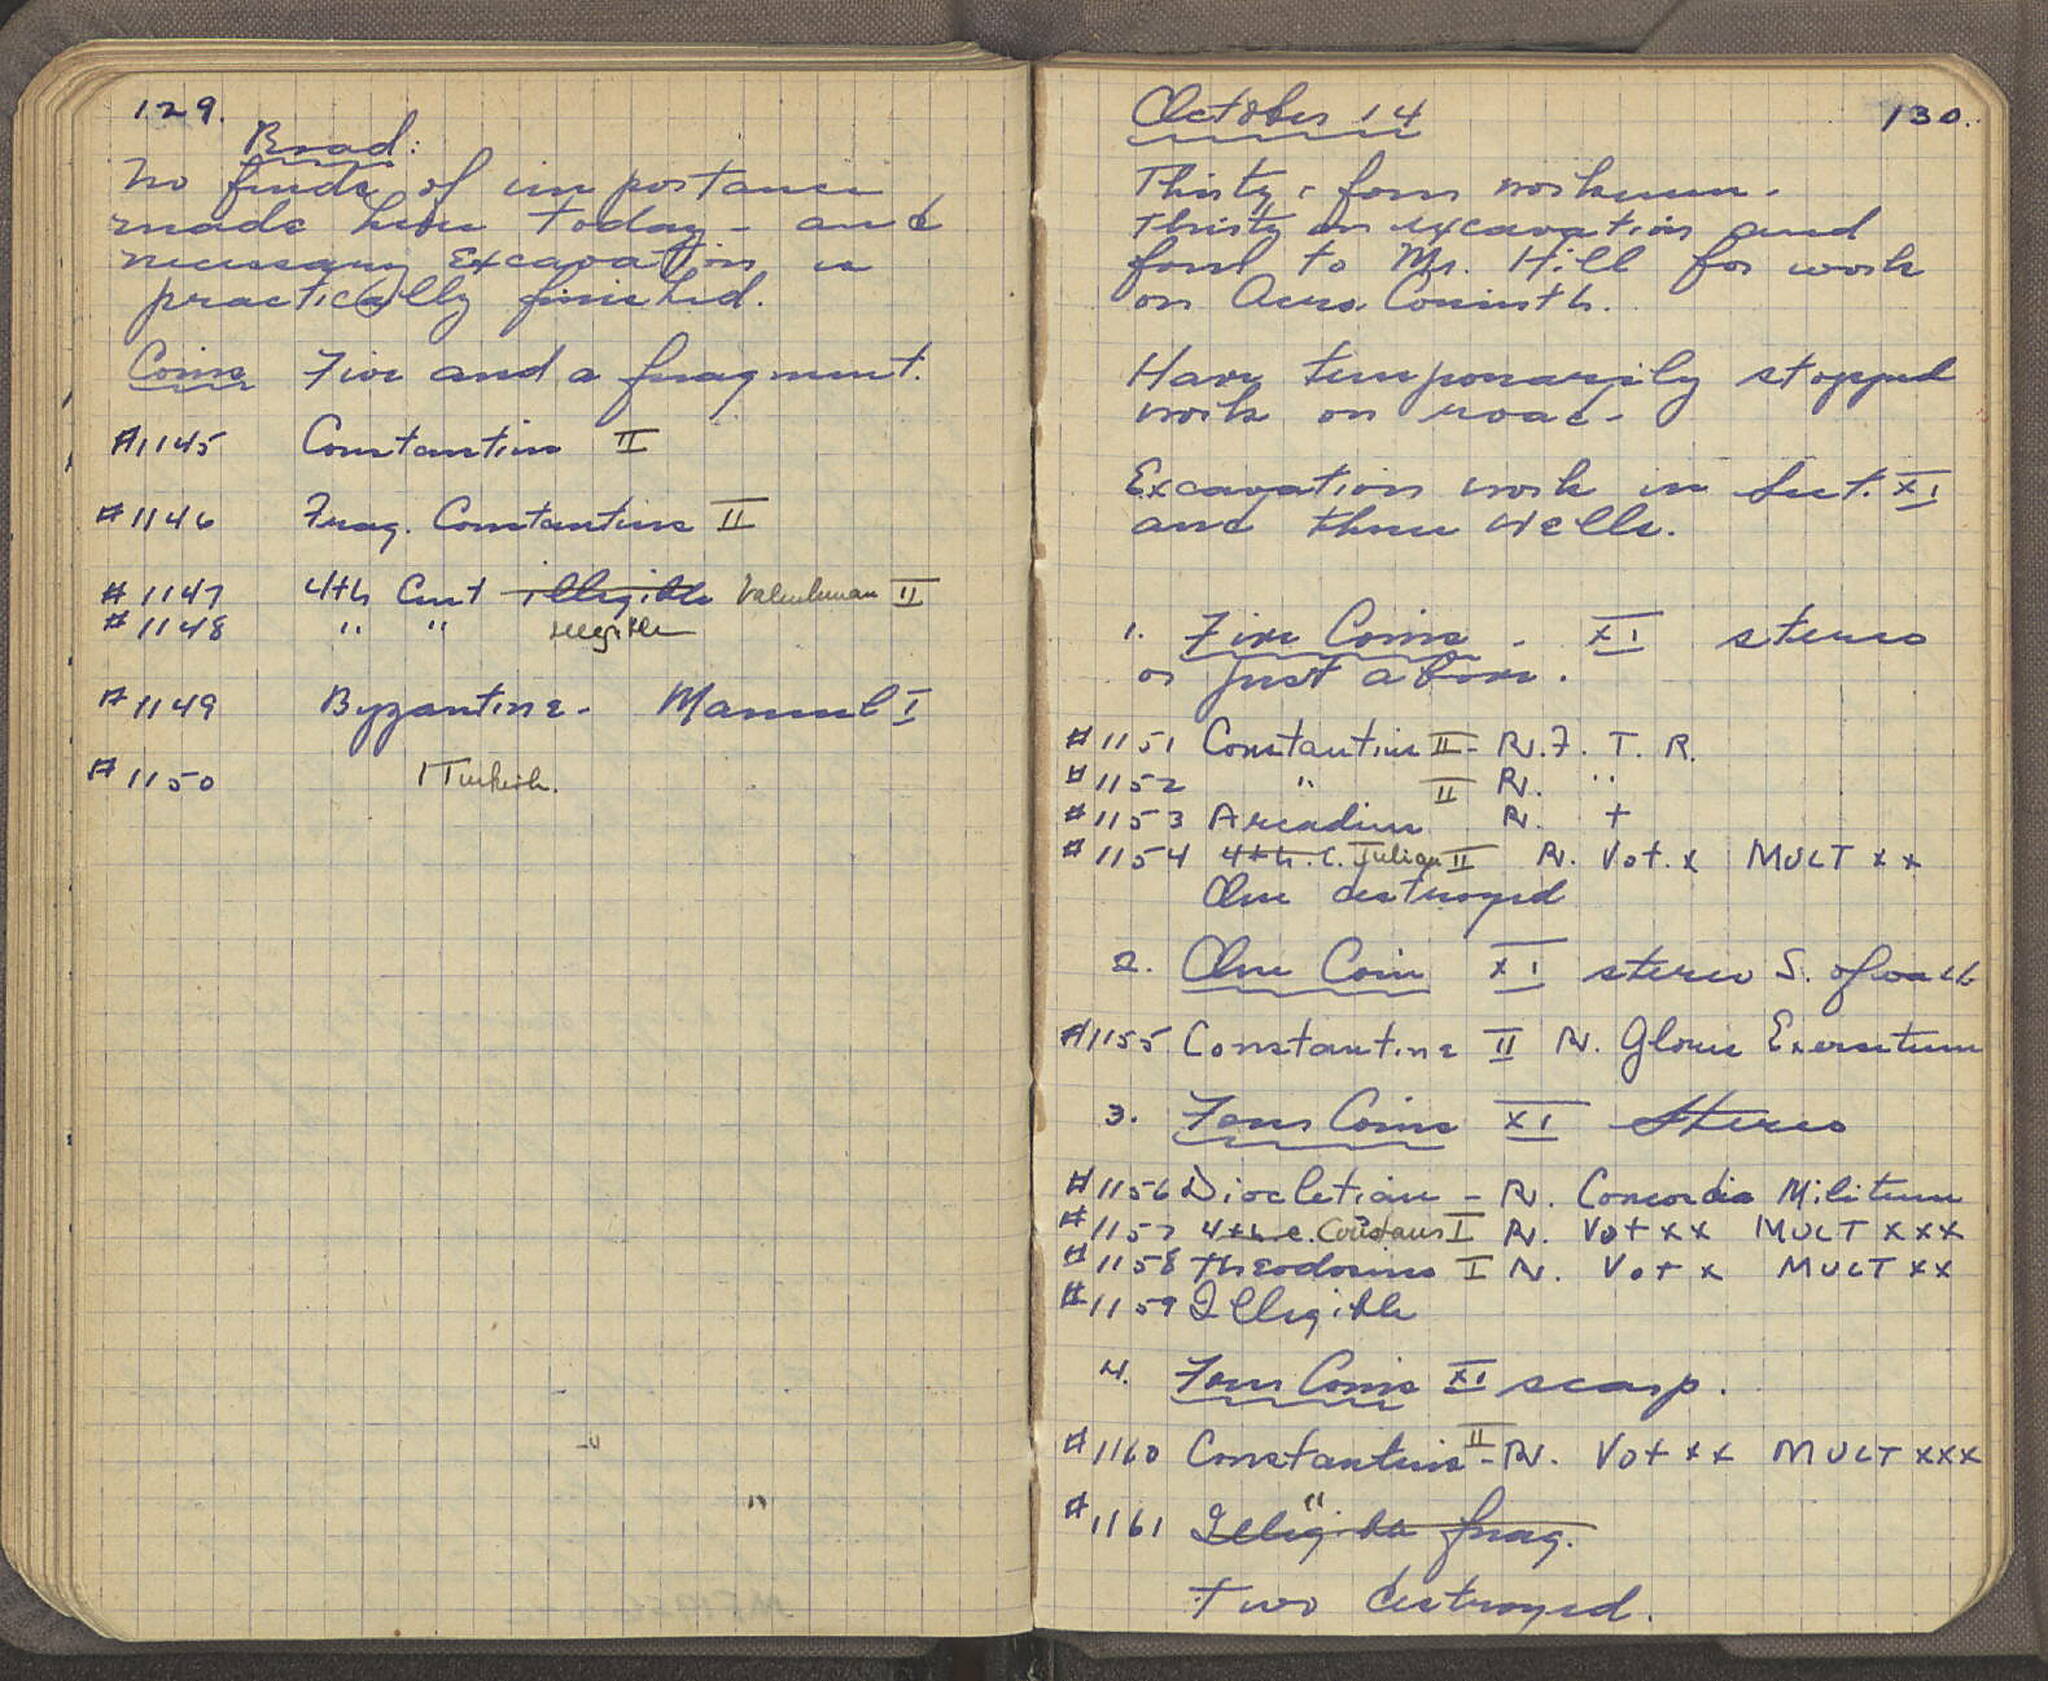 129.
Road:
No finds of importance
made here today - and
necessary Excavation is
practically finished.
Coins Five and a fragment.
#1145 Constantius II
#1146 Frag. Constantius II
#1147 4th Cent illegible Valentinian II
#1148 " " illegible
#1149 Byzantine - Manuel I
#1150 1 Turkish.
October 14 130.
Thirty-four workmen.
Thirty on excavation and
four to Mr. Hill for work
on Acro Corinth.
Have temporarily stopped
work on road.
Excavation work in Sect. XI
and three wells.
1. Five Coins - XI stereo
or just above.
#1151 Constantius II - Rv. F. T. R.
#1152 " II Rv. "
#1153 Arcadius Rv. +
#1154 4th. C. Julian II Rv. Vot. X MULT XX
One destroyed
2. One Coin XI stereo S. of wall
#1155 Constantine II Rv. Glorie Exersitum
3. Four Coins XI Stereo
#1156 Diocletian - Rv. Concordia Militum
#1157 4th c. Constans I Rv. Vot XX MULT XXX
#1158 Theodosius I Rv. Vot X MULT XX
#1159 Illegible
4. Four Coins XI scarp.
#1160 Constantius II - Rv. Vot XX MULT XXX
#1161 " Illegible frag.
Two destroyed.